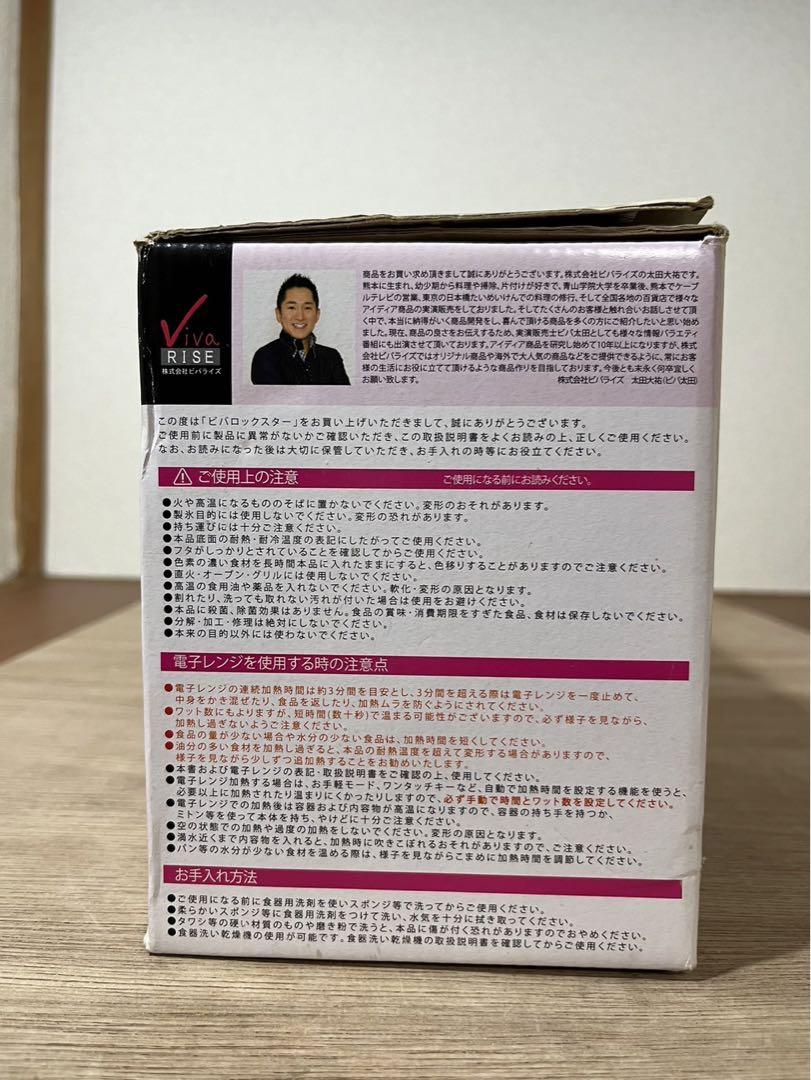 Viva
RISE
株式会社ビバライズ
商品をお買い求め頂きまして誠にありがとうございます。株式会社ビバライズの太田大祐です。
熊本に生まれ、幼少期から料理や掃除、片付けが好きで、青山学院大学を卒業後、熊本でケーブ
ルテレビの営業、東京の日本橋たいめいけんでの料理の修行、そして全国各地の百貨店で様々な
アイディア商品の実演販売をしておりました。そしてたくさんのお客様と触れ合いお話しさせて頂
く中で、本当に納得がいく商品開発をし、喜んで頂ける商品を多くの方にご紹介したいと思い始め
ました。現在、商品の良さをお伝えするため、実演販売士ビバ太田としても様々な情報バラエティ
番組にも出演させて頂いております。アイディア商品を研究し始めて10年以上になりますが、株式
会社ビバライズではオリジナル商品や海外で大人気の商品などをご提供できるように、常にお客
様の生活にお役に立てて頂けるような商品作りを目指しております。今後とも末永く何卒宜しく
お願い致します。 株式会社ビバライズ 太田大祐(ビバ太田)
この度は「ビバロックスター」をお買い上げいただきまして、誠にありがとうございます。
ご使用前に製品に異常がないかご確認いただき、この取扱説明書をよくお読みの上、正しくご使用ください。
なお、お読みになった後は大切に保管していただき、お手入れの時等にお役立てください。
ご使用上の注意 ご使用になる前にお読みください。
●火や高温になるもののそばに置かないでください。変形のおそれがあります。
●製氷目的には使用しないでください。変形の恐れがあります。
●持ち運びには十分ご注意ください。
●本品底面の耐熱・耐冷温度の表記にしたがってご使用ください。
●フタがしっかりとされていることを確認してからご使用ください。
●色素の濃い食材を長時間本品に入れたままにすると、色移りすることがありますのでご注意ください。
●直火・オーブン・グリルには使用しないでください。
●高温の食用油や薬品を入れないでください。軟化・変形の原因となります。
●割れたり、洗っても取れない汚れが付いた場合は使用をお避けください。
●本品に殺菌、除菌効果はありません。食品の賞味・消費期限をすぎた食品、食材は保存しないでください。
●分解・加工・修理は絶対にしないでください。
●本来の目的以外には使わないでください。
電子レンジを使用する時の注意点
●電子レンジの連続加熱時間は約3分間を目安とし、3分間を超える際は電子レンジを一度止めて、
中身をかき混ぜたり、食品を返したり、加熱ムラを防ぐようにされてください。
●ワット数にもよりますが、短時間(数十秒)で温まる可能性がございますので、必ず様子を見ながら、
加熱し過ぎないようご注意ください。
●食品の量が少ない場合や水分の少ない食品は、加熱時間を短くしてください。
●油分の多い食材を加熱し過ぎると、本品の耐熱温度を超えて変形する場合がありますので、
様子を見ながら少しずつ追加熱することをお勧めいたします。
●本書および電子レンジの表記・取扱説明書をご確認の上、使用してください。
●電子レンジ加熱する場合は、お手軽モード、ワンタッチキーなど、自動で加熱時間を設定する機能を使うと、
必要以上に加熱されたり温まりにくかったりしますので、必ず手動で時間とワット数を設定してください。
●電子レンジでの加熱後は容器および内容物が高温になりますので、容器の持ち手を持つか、
ミトン等を使って本体を持ち、やけどに十分ご注意ください。
●空の状態での加熱や過度の加熱をしないでください。変形の原因となります。
●満水近くまで内容物を入れると、加熱時に吹きこぼれるおそれがありますので、ご注意ください。
●パン等の水分が少ない食材を温める際は、様子を見ながらこまめに加熱時間を調節してください。
お手入れ方法
●ご使用になる前に食器用洗剤を使いスポンジ等で洗ってからご使用ください。
●柔らかいスポンジ等に食器用洗剤をつけて洗い、水気を十分に拭き取ってください。
●タワシ等の硬い材質のものや磨き粉で洗うと、本品に傷が付く恐れがありますのでおやめください。
●食器洗い乾燥機の使用が可能です。食器洗い乾燥機の取扱説明書を確認してからご使用ください。